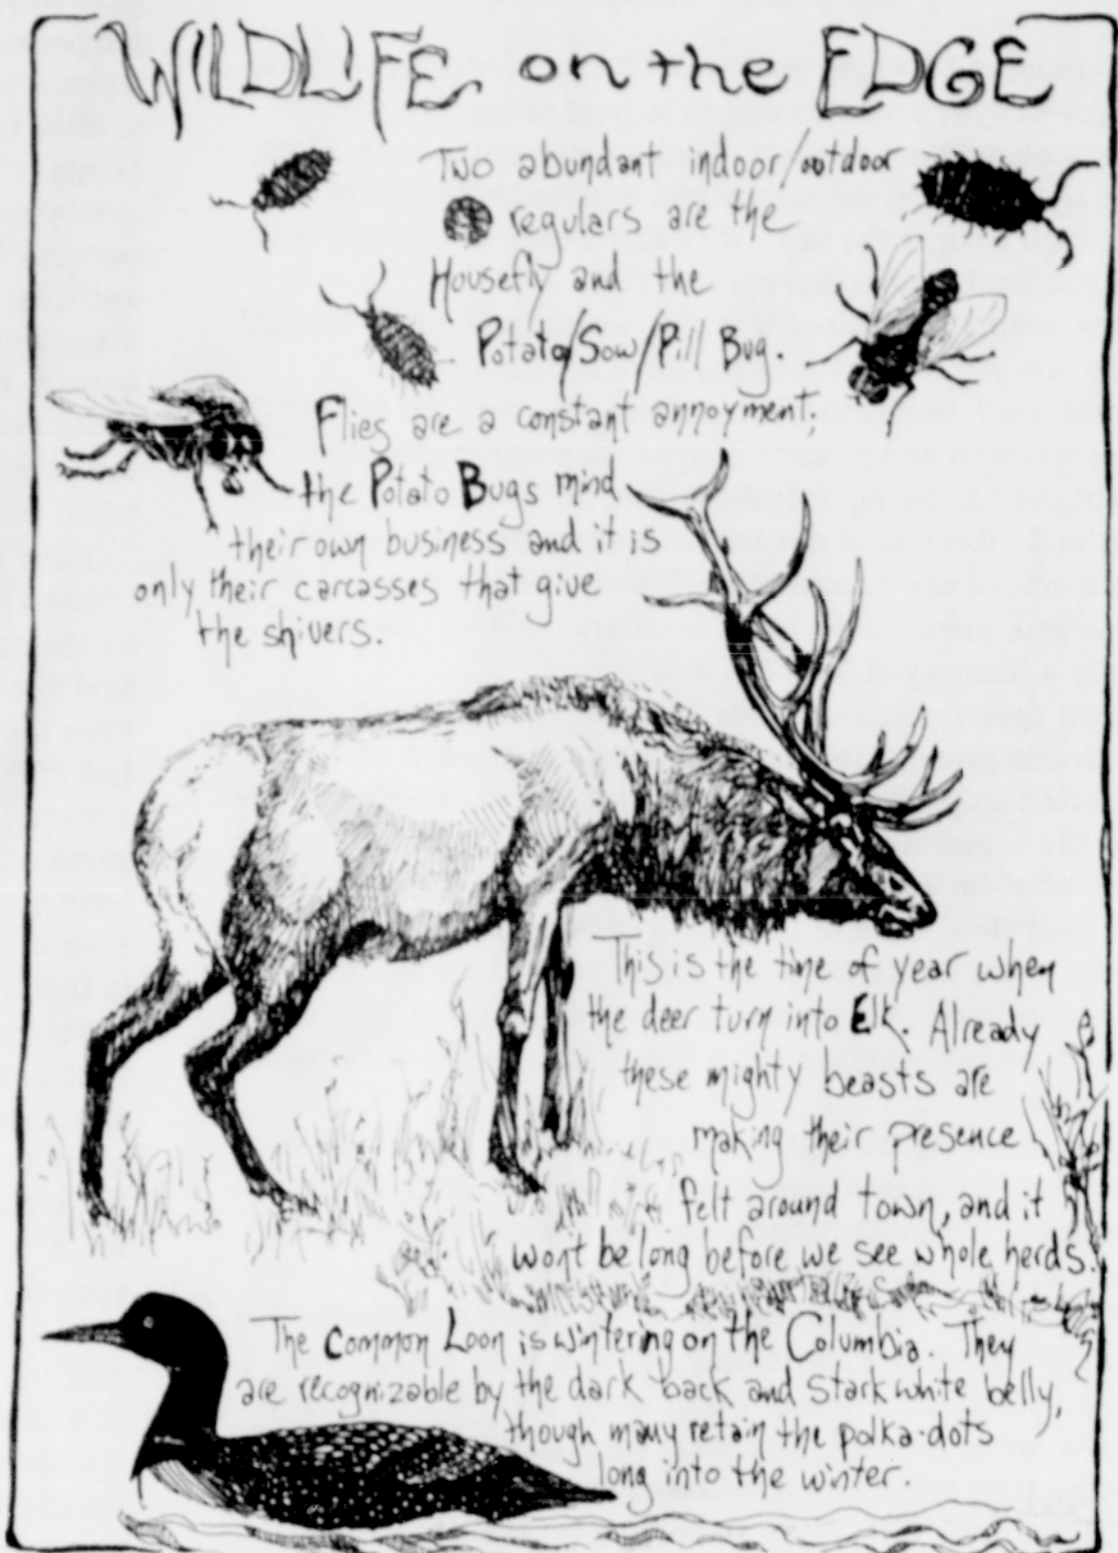 WILDLIFE on the EDGE
Two abundant indoor/outdoor
regulars are the
Housefly and the
Potato/Sow/Pill Bug.
Flies are a constant annoyment;
the Potato Bugs mind
their own business and it is
only their carcasses that give
the shivers.
This is the time of year when
the deer turn into Elk. Already
these mighty beasts are
making their presence
felt around town, and it
wont be long before we see whole herds.
The Common Loon is wintering on the Columbia. They
are recognizable by the dark back and stark white belly,
though many retain the polka-dots
long into the winter.